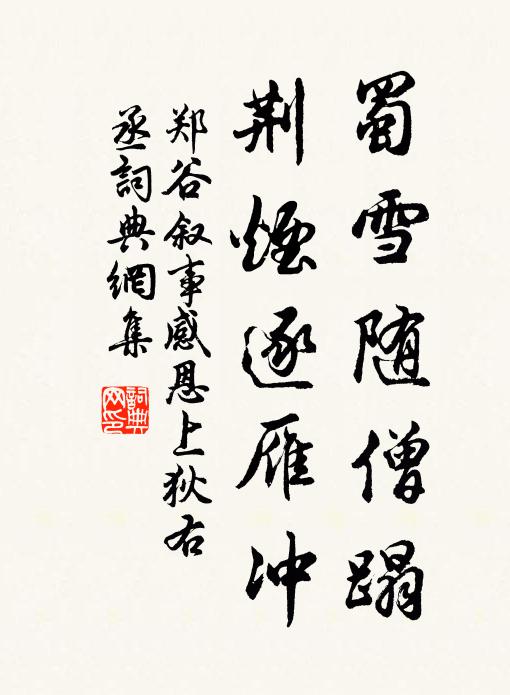 蜀雪随僧蹋
荆煙逐雁冲
郑谷叙事感恩上狄右
丞詞典網集
詞典
网印